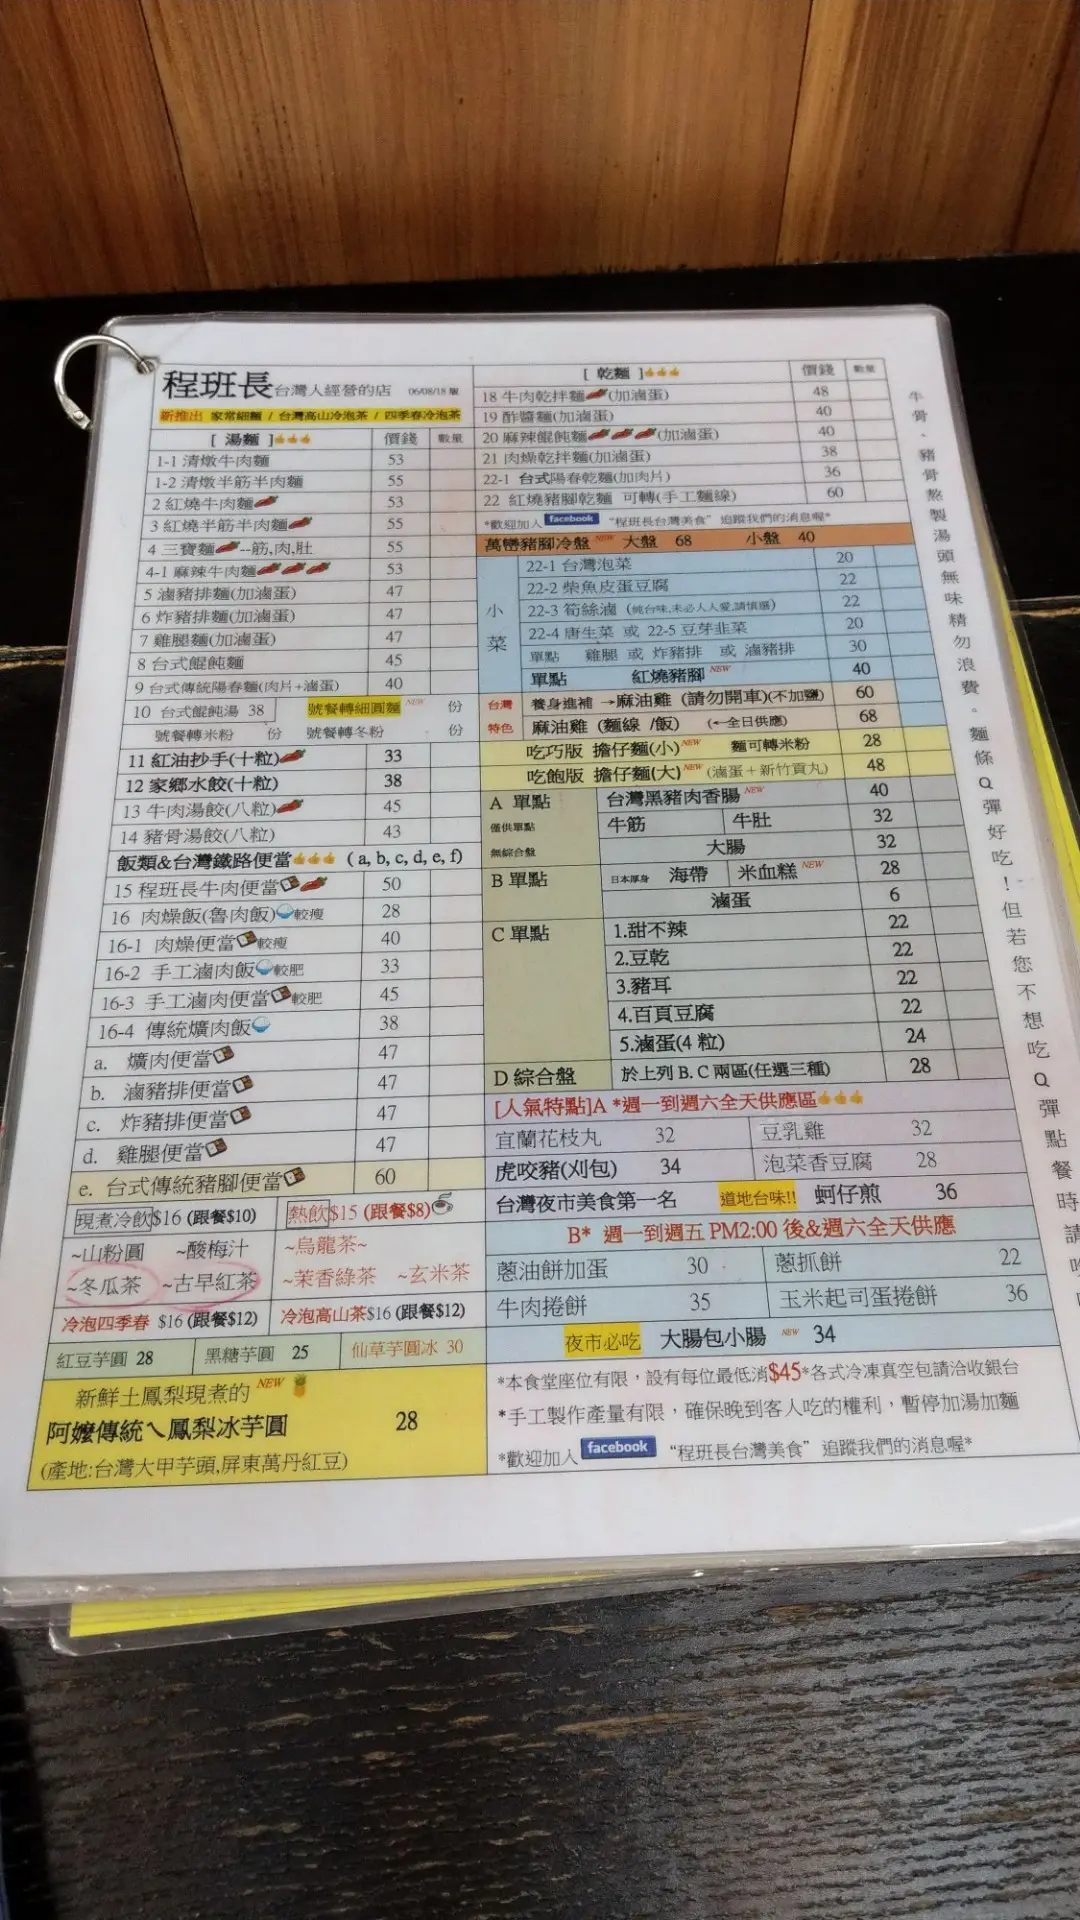 程班長台灣人經營的店 06/08/18 版
新推出 家常細麵 / 台灣高山冷泡茶 / 四季春冷泡茶
[ 湯麵 ] 價錢 數量
1-1 清燉牛肉麵 53
1-2 清燉半筋半肉麵 55
2 紅燒牛肉麵 53
3 紅燒半筋半肉麵 55
4 三寶麵--筋,肉,肚 55
4-1 麻辣牛肉麵 53
5 滷豬排麵(加滷蛋) 47
6 炸豬排麵(加滷蛋) 47
7 雞腿麵(加滷蛋) 47
8 台式餛飩麵 45
9 台式傳統陽春麵(肉片+滷蛋) 40
10 台式餛飩湯 38 號餐轉細圓麵 NEW 份
號餐轉米粉 份 號餐轉冬粉 份
11 紅油抄手(十粒) 33
12 家鄉水餃(十粒) 38
13 牛肉湯餃(八粒) 45
14 豬骨湯餃(八粒) 43
飯類&台灣鐵路便當 ( a, b, c, d, e, f)
15 程班長牛肉便當 50
16 肉燥飯(魯肉飯)較瘦 28
16-1 肉燥便當較瘦 40
16-2 手工滷肉飯較肥 33
16-3 手工滷肉便當較肥 45
16-4 傳統爌肉飯 38
a. 爌肉便當 47
b. 滷豬排便當 47
c. 炸豬排便當 47
d. 雞腿便當 47
e. 台式傳統豬腳便當 60
現煮冷飲$16 (跟餐$10) 熱飲$15 (跟餐$8)
~山粉圓 ~酸梅汁 ~烏龍茶~
~冬瓜茶 ~古早紅茶 ~茉香綠茶 ~玄米茶
冷泡四季春 $16 (跟餐$12) 冷泡高山茶$16 (跟餐$12)
紅豆芋圓 28 黑糖芋圓 25 仙草芋圓冰 30
新鮮土鳳梨現煮的 NEW
阿嬤傳統ㄟ鳳梨冰芋圓 28
(產地:台灣大甲芋頭,屏東萬丹紅豆)
[ 乾麵 ] 價錢 數量
18 牛肉乾拌麵(加滷蛋) 48
19 酢醬麵(加滷蛋) 40
20 麻辣餛飩麵(加滷蛋) 40
21 肉燥乾拌麵(加滷蛋) 38
22-1 台式陽春乾麵(加肉片) 36
22 紅燒豬腳乾麵 可轉(手工麵線) 60
*歡迎加入 facebook “程班長台灣美食” 追蹤我們的消息喔*
萬巒豬腳冷盤 NEW 大盤 68 小盤 40
小菜
22-1 台灣泡菜 20
22-2 柴魚皮蛋豆腐 22
22-3 筍絲滷 (純台味,未必人人愛,請慎選) 22
22-4 唐生菜 或 22-5 豆芽韭菜 20
單點 雞腿 或 炸豬排 或 滷豬排 30
單點 紅燒豬腳 NEW 40
台灣 養身進補 →麻油雞 (請勿開車)(不加鹽) 60
特色 麻油雞 (麵線 /飯) (←全日供應) 68
吃巧版 擔仔麵(小) NEW 麵可轉米粉 28
吃飽版 擔仔麵(大) NEW (滷蛋+新竹貢丸) 48
A 單點 台灣黑豬肉香腸 NEW 40
僅供單點 牛筋 牛肚 32
無綜合盤 大腸 32
B 單點 日本厚身 海帶 米血糕 NEW 28
滷蛋 6
C 單點 1.甜不辣 22
2.豆乾 22
3.豬耳 22
4.百頁豆腐 22
5.滷蛋(4 粒) 24
D 綜合盤 於上列 B. C 兩區(任選三種) 28
[人氣特點]A *週一到週六全天供應區
宜蘭花枝丸 32 豆乳雞 32
虎咬豬(刈包) 34 泡菜香豆腐 28
台灣夜市美食第一名 道地台味!! 蚵仔煎 36
B* 週一到週五 PM2:00 後&週六全天供應
蔥油餅加蛋 30 蔥抓餅 22
牛肉捲餅 35 玉米起司蛋捲餅 36
夜市必吃 大腸包小腸 NEW 34
*本食堂座位有限，設有每位最低消$45*各式冷凍真空包請洽收銀台
*手工製作產量有限，確保晚到客人吃的權利，暫停加湯加麵
*歡迎加入 facebook “程班長台灣美食” 追蹤我們的消息喔*
牛骨、豬骨熬製湯頭無味精勿浪費。麵條Q彈好吃！但若您不想吃Q彈點餐時請